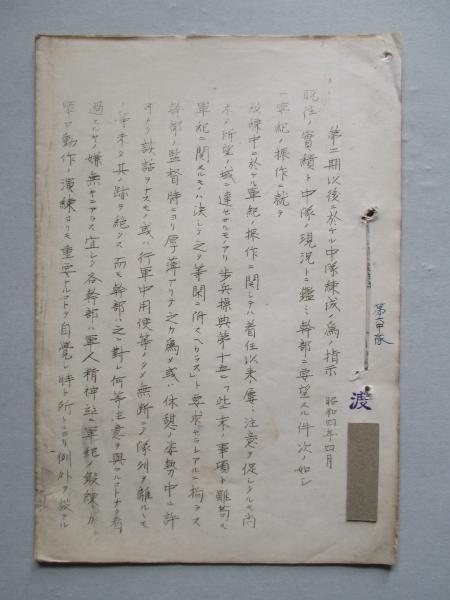 第六中隊
渡
第二期以後ニ於ケル中隊練成ノ為ノ指示
昭和四年四月
既往ノ實績ト中隊ノ現況トニ鑑ミ幹部ニ要望スル件次ノ如シ
一、軍紀ノ振作ニ就テ
教練中ニ於ケル軍紀ノ振作ニ関シテハ着任以来屡〻注意ヲ促シタルモ尚
未ダ所望ノ域ニ達セザルモノアリ歩兵操典第十五ニ「些末ノ事項ト雖苟モ
軍紀ニ関スルモノハ決シテ之ヲ等閑ニ附スヘカラス」ト要求セラレアルニ拘ラス
幹部ノ監督特ニヨリ厚薄アリテ之カ為メ或ハ休憩ノ姿勢中ニ許
可ナク談話ヲナスモノ或ハ行軍中用便等ノタメ無断ニテ隊列ヲ離ルヽモ
ノ等未タ其ノ跡ヲ絶タス而モ幹部ハ之ニ對シ何等注意ヲ與フルコトナク看
過スルヤノ嫌無キニアラス宜シク各幹部ハ軍人精神竝ニ軍紀ノ鍛錬カ
ノ動作ノ演練ヨリモ重要ナルコトヲ自覺シ時ト所トニヨリ例外ヲ設クル